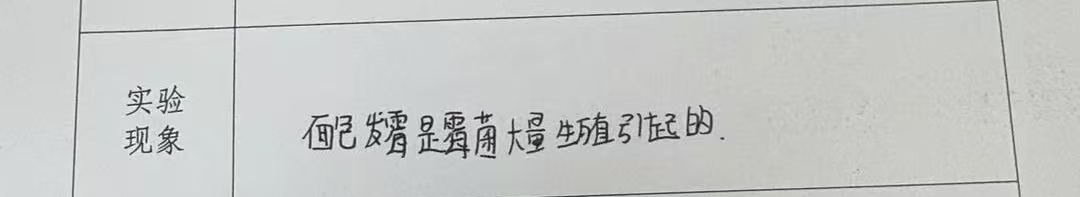 实验
现象
面包发霉是霉菌大量生殖引起的.